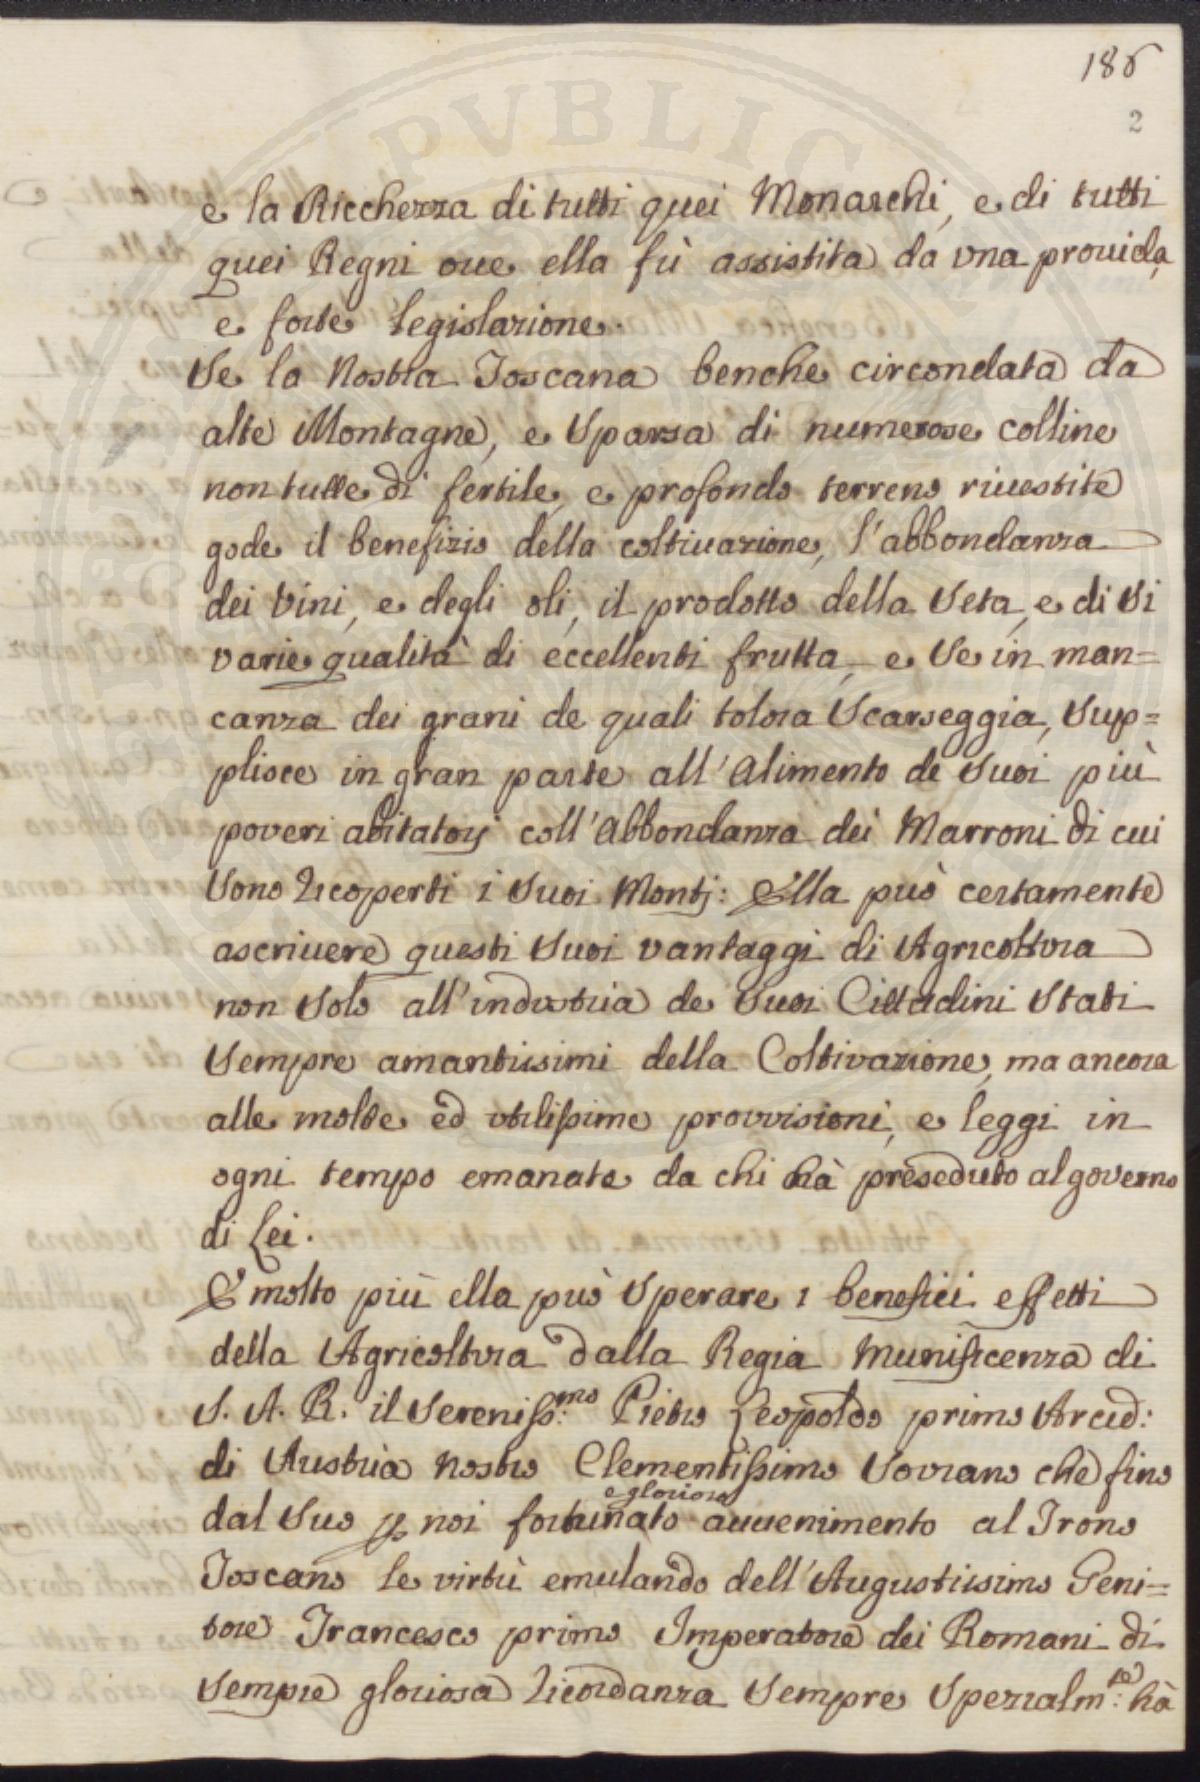 186
2
e la Ricchezza di tutti quei Monarchi, e di tutti
quei Regni oue ella fù assistita da vna prouida,
e forte legislazione.
Se la Nostra Toscana benche circondata da
alte Montagne, e Sparsa di numerose colline
non tutte di fertile, e profondo terreno riuestite
gode il benefizio della coltiuazione, l'abbondanza
dei Vini, e degli oli, il prodotto della Seta, e di Si
varie qualità di eccellenti frutta, e Se in man=
canza dei grani de quali talora Scarseggia, Sup=
plisce in gran parte all'Alimento de Suoi più
poveri abitatorj coll'Abbondanza dei Marroni di cui
Sono ricoperti i Suoi Montj: Ella può certamente
ascriuere questi Suoi vantaggi di Agricoltura
non Solo all'industria de Suoi Cittadini Stati
Sempre amantissimi della Coltivazione, ma ancora
alle molte ed vtilissime provvisioni, e leggi in
ogni tempo emanate da chi hà preseduto al governo
di Lei.
E molto più ella può Sperare i benefici effetti
della Agricoltura dalla Regia Munificenza di
S. A. R. il Sereniss:mo Pietro Leopoldo primo Arcid:
di Austria nostro Clementissimo Sovrano che fino
dal Suo p noi fortunato e glorioso auuenimento al Trono
Toscano le virtù emulando dell'Augustissimo Geni=
tore Francesco primo Imperatore dei Romani di
Sempre gloriosa ricordanza Sempre Spezialm:te hà
PVBLIC